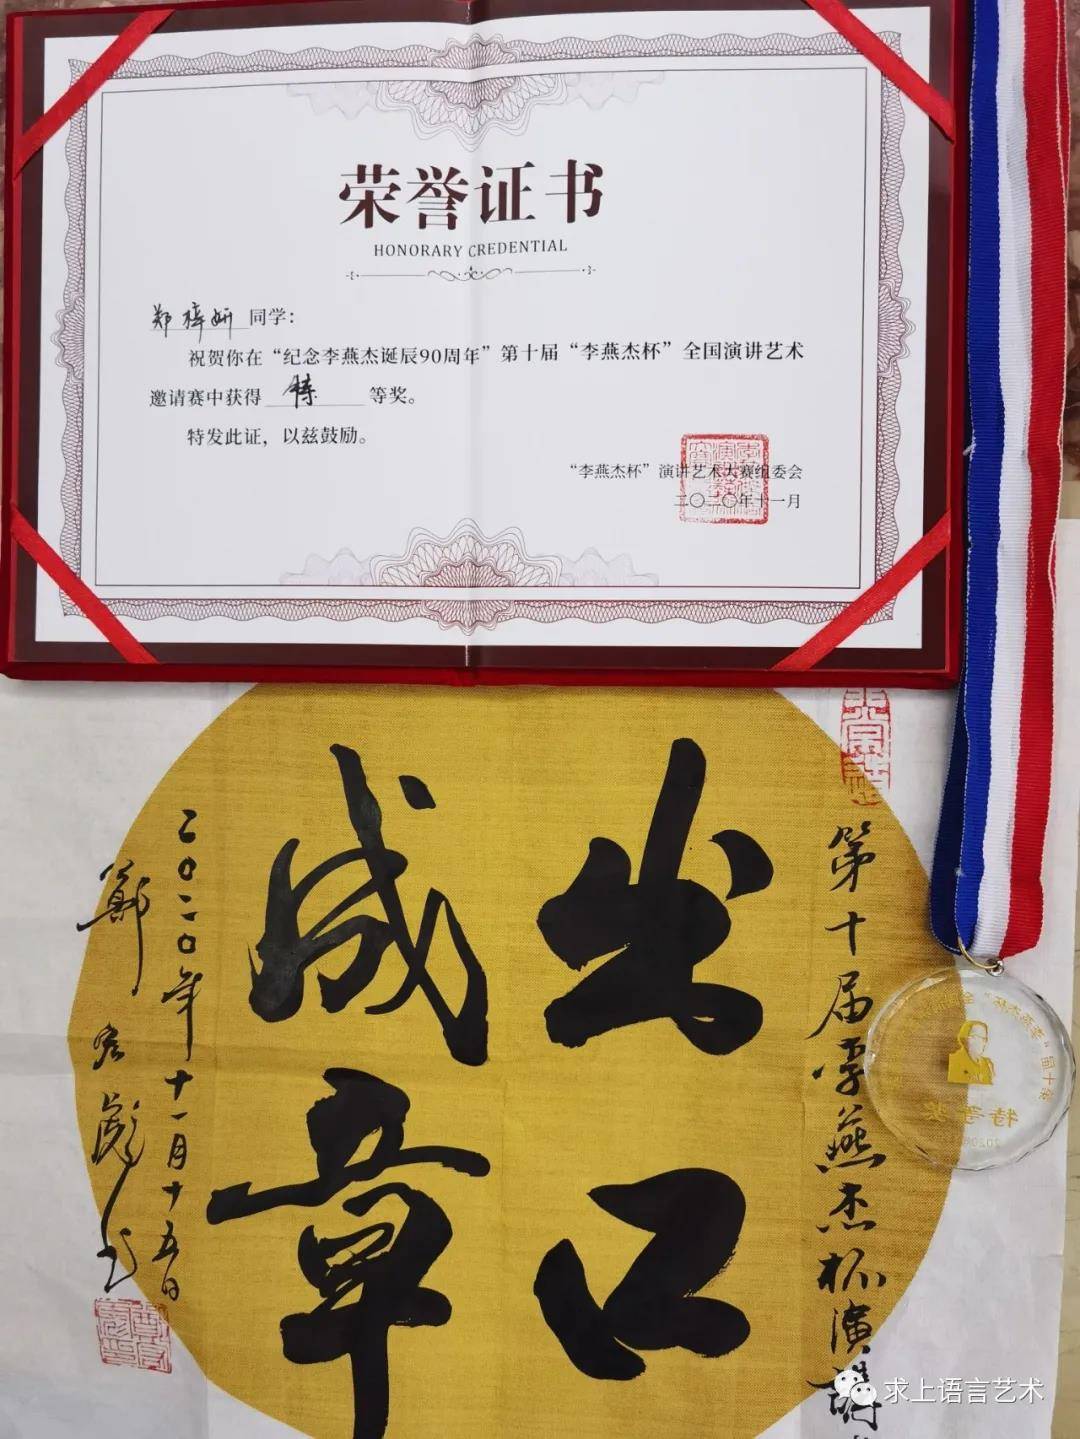 荣誉证书
HONORARY CREDENTIAL
郑梓妍同学：
祝贺你在“纪念李燕杰诞辰90周年”第十届“李燕杰杯”全国演讲艺术
邀请赛中获得 特 等奖。
特发此证，以兹鼓励。
“李燕杰杯”演讲艺术大赛组委会
二〇二〇年十一月
第十届李燕杰杯演講
出口
成章
二〇二〇年十一月十五日
鄭
特等奖
2020
求上语言艺术